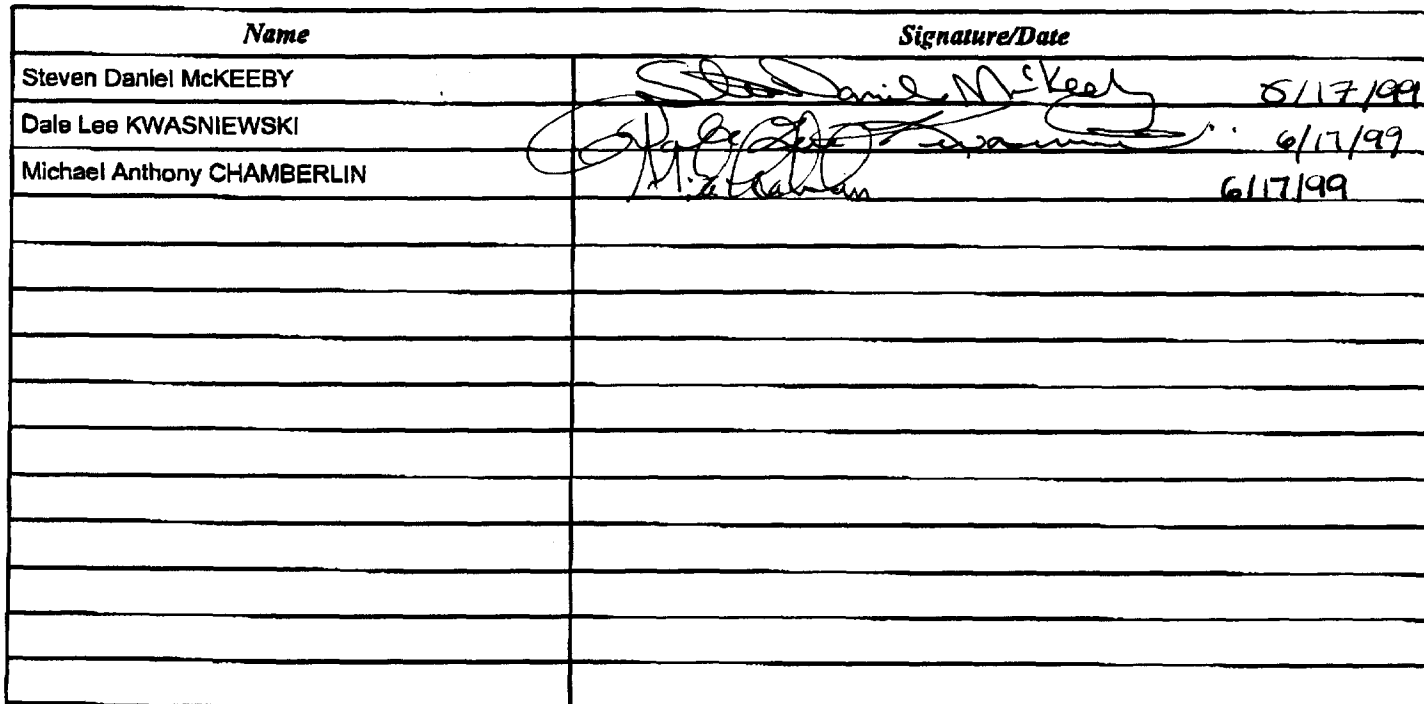 Name Signature/Date
Steven Daniel McKEEBY Steven Daniel McKeeby 6/17/99
Dale Lee KWASNIEWSKI Dale Lee 6/17/99
Michael Anthony CHAMBERLIN 6/17/99